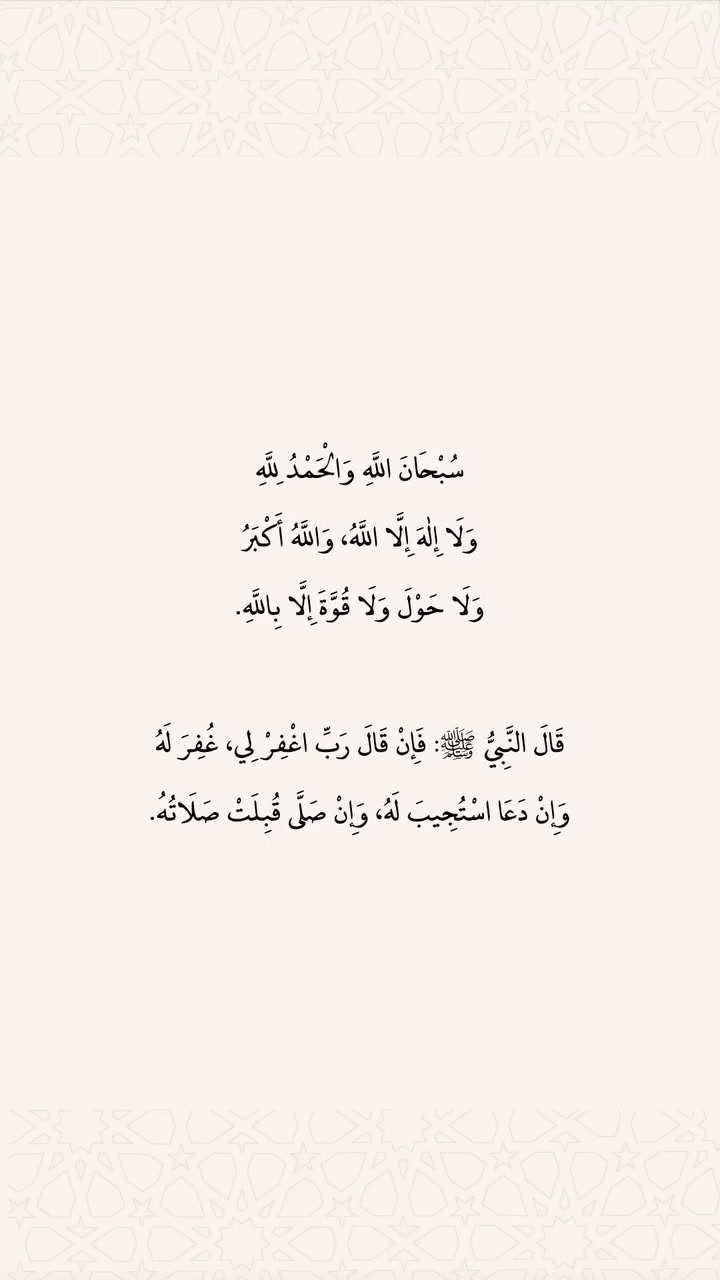 سُبْحَانَ اللَّهِ وَالْحَمْدُ لِلَّهِ
وَلَا إِلٰهَ إِلَّا اللَّهُ، وَاللَّهُ أَكْبَرُ
وَلَا حَوْلَ وَلَا قُوَّةَ إِلَّا بِاللَّهِ.
قَالَ النَّبِيُّ ﷺ: فَإِنْ قَالَ رَبِّ اغْفِرْ لِي، غُفِرَ لَهُ
وَإِنْ دَعَا اسْتُجِيبَ لَهُ، وَإِنْ صَلَّى قُبِلَتْ صَلَاتُهُ.